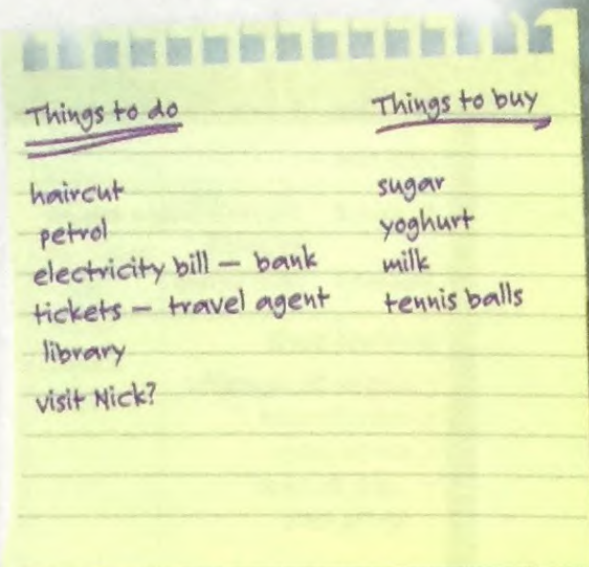 Things to do
haircut
petrol
electricity bill – bank
tickets – travel agent
library
visit Nick?
Things to buy
sugar
yoghurt
milk
tennis balls